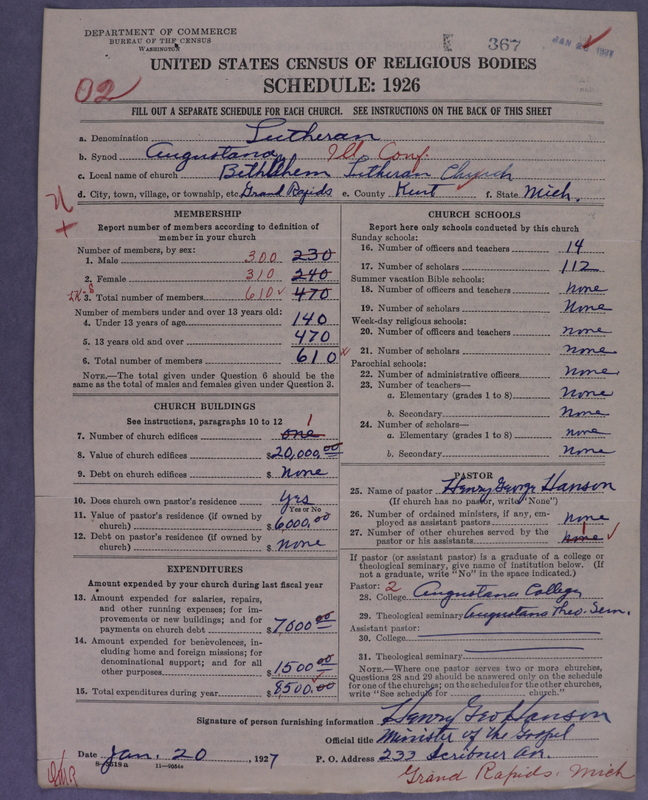 DEPARTMENT OF COMMERCE
BUREAU OF THE CENSUS
WASHINGTON
367
JAN 1927
UNITED STATES CENSUS OF RELIGIOUS BODIES
SCHEDULE: 1926
02
FILL OUT A SEPARATE SCHEDULE FOR EACH CHURCH. SEE INSTRUCTIONS ON THE BACK OF THIS SHEET
a. Denomination Lutheran
b. Synod Augustana Ill Conf.
c. Local name of church Bethlehem Lutheran Church
d. City, town, village, or township, etc. Grand Rapids e. County Kent f. State Mich.
MEMBERSHIP
Report number of members according to definition of member in your church
Number of members, by sex:
1. Male 300 230
2. Female 310 240
3. Total number of members 610 470
Number of members under and over 13 years old:
4. Under 13 years of age 140
5. 13 years old and over 470
6. Total number of members 610
NOTE.—The total given under Question 6 should be the same as the total of males and females given under Question 3.
CHURCH BUILDINGS
See instructions, paragraphs 10 to 12
7. Number of church edifices one 1
8. Value of church edifices $20,000.00
9. Debt on church edifices $ None
10. Does church own pastor's residence Yes
Yes or No
11. Value of pastor's residence (if owned by church) $6,000.00
12. Debt on pastor's residence (if owned by church) $ none
EXPENDITURES
Amount expended by your church during last fiscal year
13. Amount expended for salaries, repairs, and other running expenses; for improvements or new buildings; and for payments on church debt $7,000.00
14. Amount expended for benevolences, including home and foreign missions; for denominational support; and for all other purposes $1500.00
15. Total expenditures during year $8500.00
CHURCH SCHOOLS
Report here only schools conducted by this church
Sunday schools:
16. Number of officers and teachers 14
17. Number of scholars 112
Summer vacation Bible schools:
18. Number of officers and teachers None
19. Number of scholars None
Week-day religious schools:
20. Number of officers and teachers none
21. Number of scholars None
Parochial schools:
22. Number of administrative officers None
23. Number of teachers—
a. Elementary (grades 1 to 8) None
b. Secondary None
24. Number of scholars—
a. Elementary (grades 1 to 8) none
b. Secondary None
PASTOR
25. Name of pastor Henry George Hanson
(If church has no pastor, write "None")
26. Number of ordained ministers, if any, employed as assistant pastors none
27. Number of other churches served by the pastor or his assistants none
If pastor (or assistant pastor) is a graduate of a college or theological seminary, give name of institution below. (If not a graduate, write "No" in the space indicated.)
Pastor: 2
28. College Augustana College
29. Theological seminary Augustana Theo. Sem.
Assistant pastor:
30. College
31. Theological seminary
NOTE.—Where one pastor serves two or more churches, Questions 28 and 29 should be answered only on the schedule for one of the churches; on the schedules for the other churches, write "See schedule for church."
Signature of person furnishing information Henry Geo Hanson
Official title Minister of the Gospel
Date Jan. 20, 1927 P. O. Address 233 Scribner Av.
Grand Rapids, Mich
11—9054a